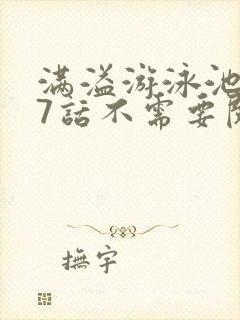 满溢游泳池
7話不需要
撫宇